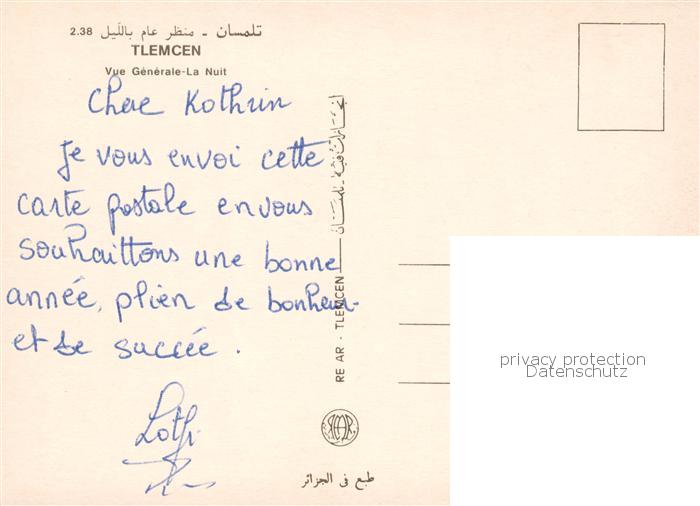 2.38 تلمسان - منظر عام بالليل
TLEMCEN
Vue Générale-La Nuit
Chere Kothrin
Je vous envoi cette
carte postale en vous
souhaittons une bonne
année, plien de bonheur
et de succée.
Lotfi
RE AR · TLEMCEN
طبع في الجزائر
privacy protection
Datenschutz